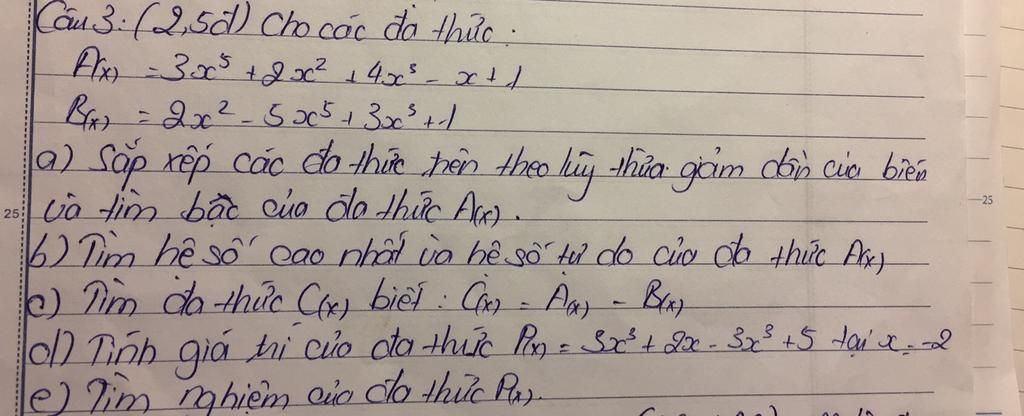 Câu 3: (2,5đ) Cho các đa thức:
A(x) = 3x⁵ + 2x² + 4x³ - x + 1
B(x) = 2x² - 5x⁵ + 3x³ + 1
a) Sắp xếp các đa thức trên theo lũy thừa giảm dần của biến
và tìm bậc của đa thức A(x).
b) Tìm hệ số cao nhất và hệ số tự do của đa thức A(x)
c) Tìm đa thức C(x) biết: C(x) = A(x) - B(x)
d) Tính giá trị của đa thức P(x) = 3x³ + 2x - 3x³ + 5 tại x = -2
e) Tìm nghiệm của đa thức P(x).
25
25